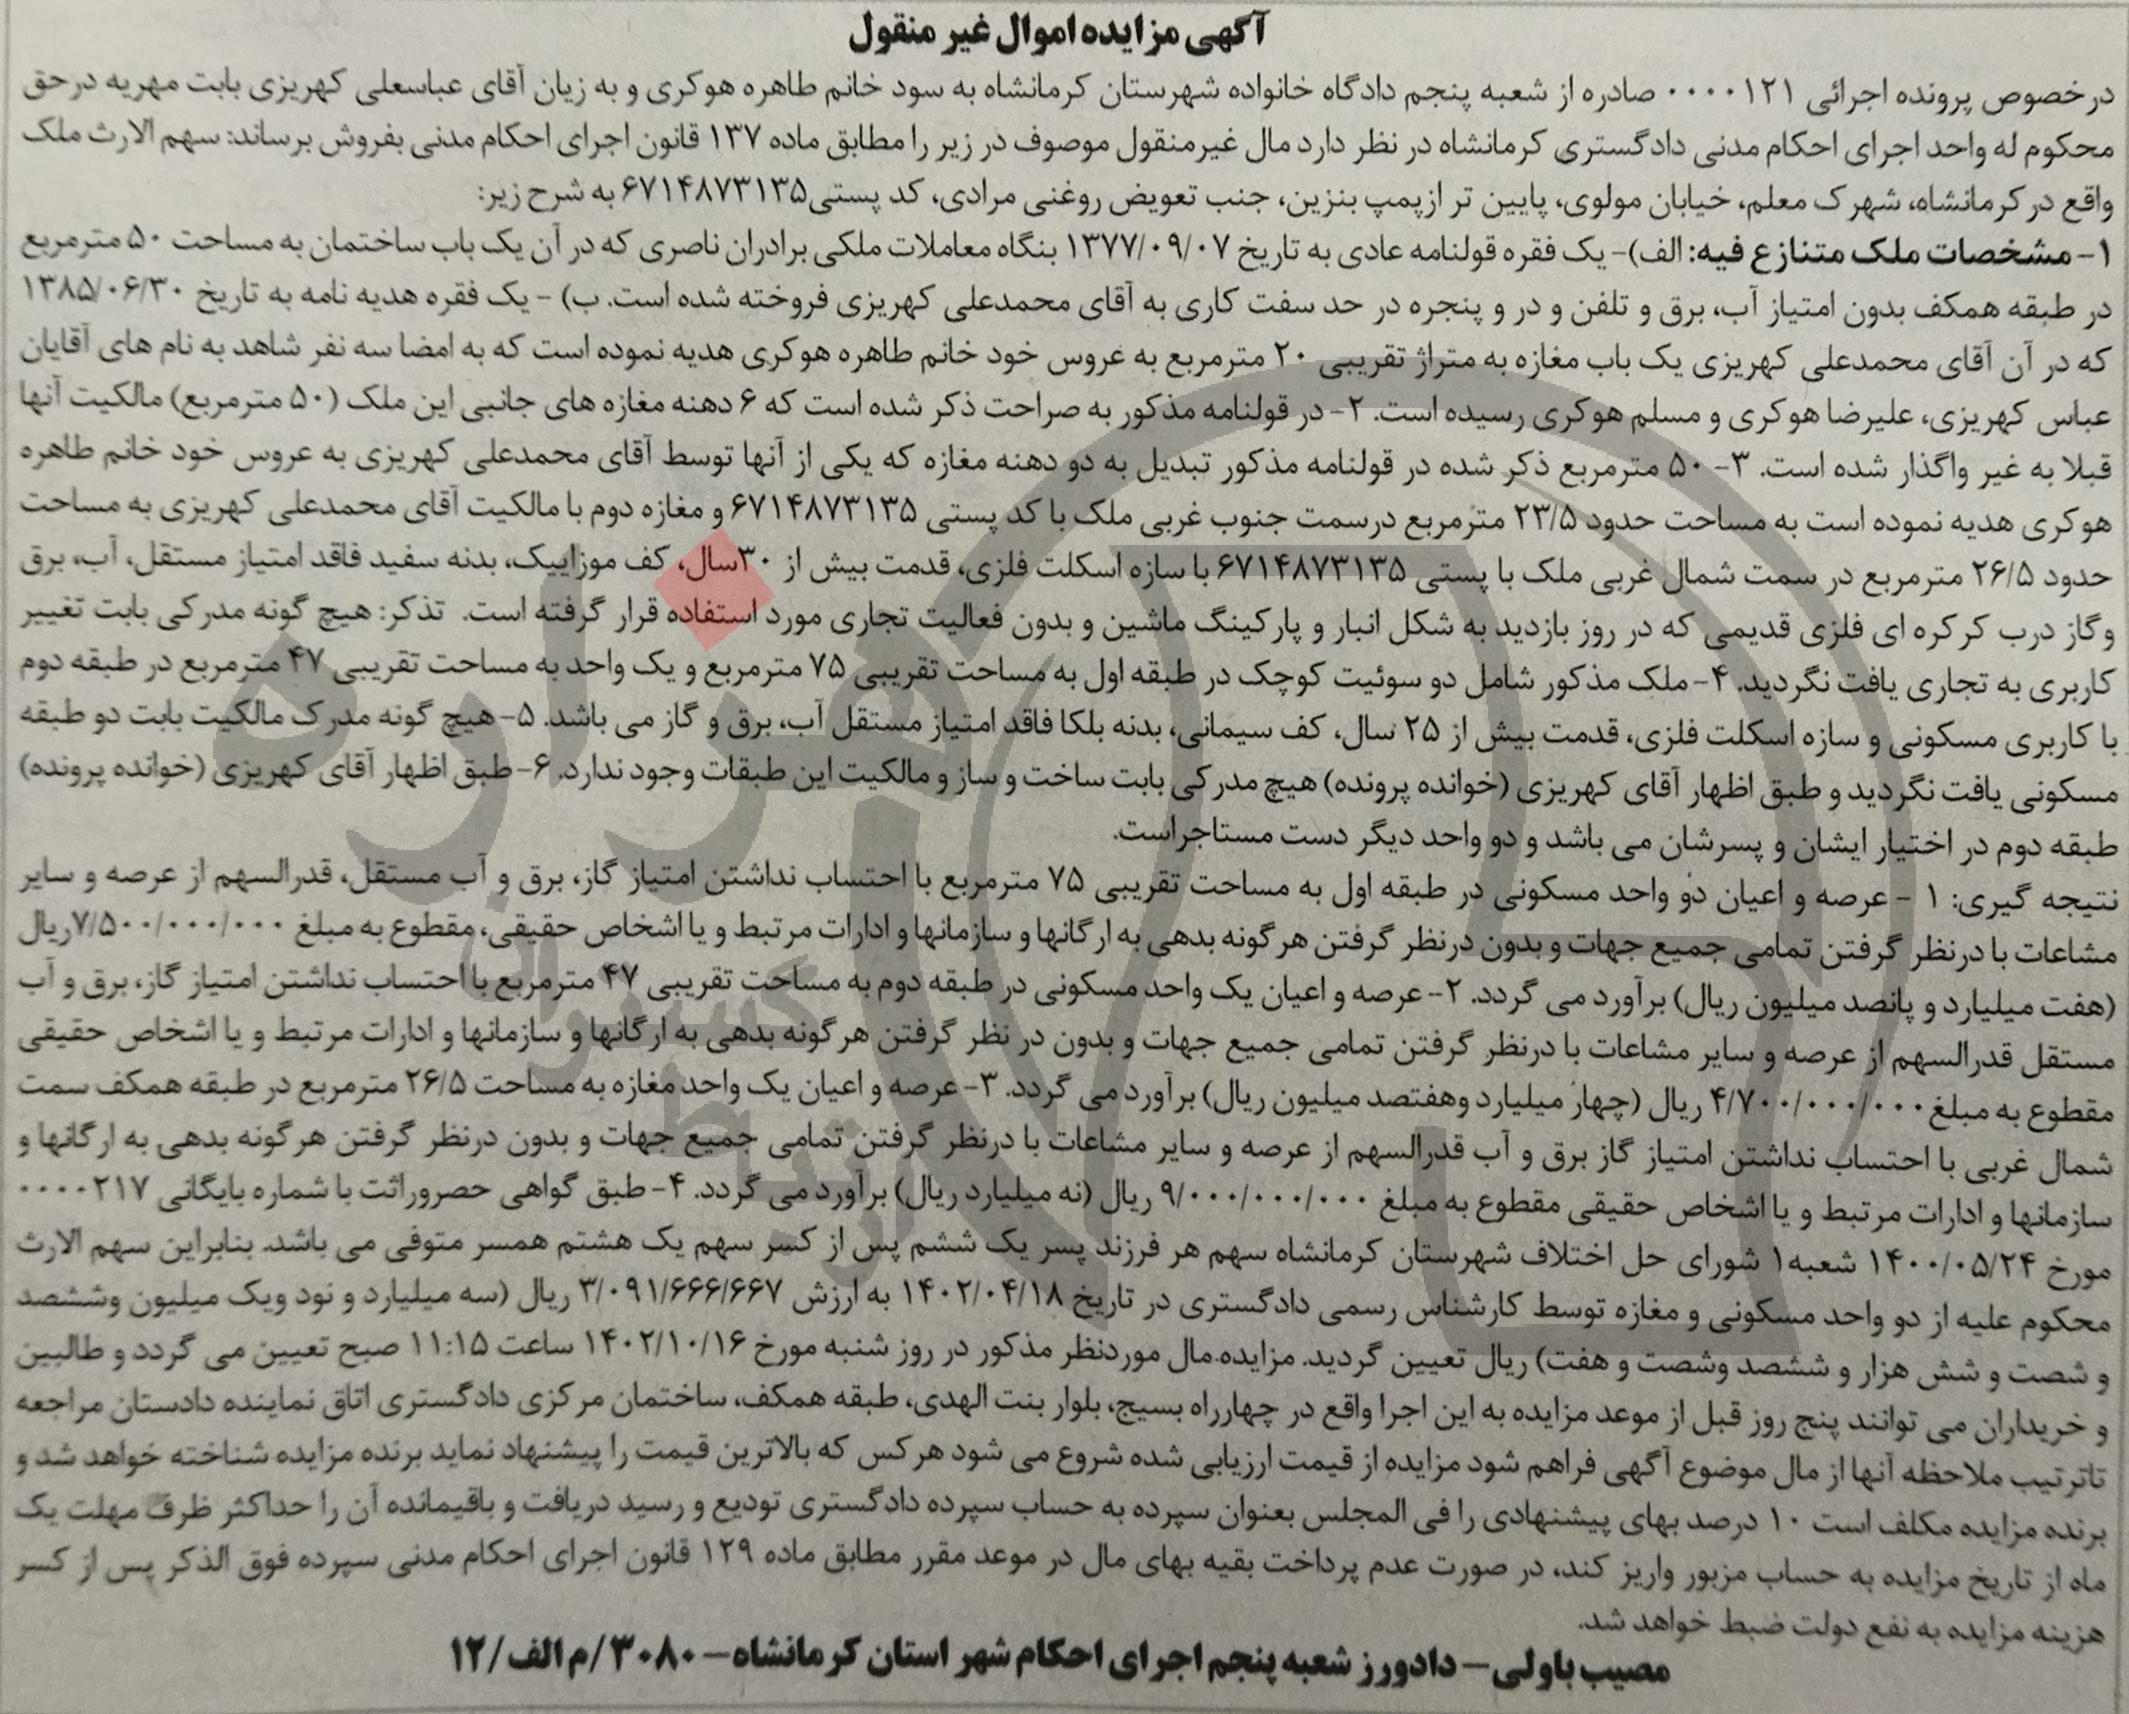 آگهی مزایده اموال غیر منقول
درخصوص پرونده اجرائی ۰۰۰۰۱۲۱ صادره از شعبه پنجم دادگاه خانواده شهرستان کرمانشاه به سود خانم طاهره هوکری و به زیان آقای عباسعلی کهریزی بابت مهریه درحق
محکوم له واحد اجرای احکام مدنی دادگستری کرمانشاه در نظر دارد مال غیرمنقول موصوف در زیر را مطابق ماده ۱۳۷ قانون اجرای احکام مدنی بفروش برساند: سهم الارث ملک
واقع در کرمانشاه، شهرک معلم، خیابان مولوی، پایین تر ازپمپ بنزین، جنب تعویض روغنی مرادی، کد پستی۶۷۱۴۸۷۳۱۳۵ به شرح زیر:
۱- مشخصات ملک متنازع فیه: الف)- یک فقره قولنامه عادی به تاریخ ۱۳۷۷/۰۹/۰۷ بنگاه معاملات ملکی برادران ناصری که در آن یک باب ساختمان به مساحت ۵۰ مترمربع
در طبقه همکف بدون امتیاز آب، برق و تلفن و در و پنجره در حد سفت کاری به آقای محمدعلی کهریزی فروخته شده است. ب) - یک فقره هدیه نامه به تاریخ ۱۳۸۵/۰۶/۳۰
که در آن آقای محمدعلی کهریزی یک باب مغازه به متراژ تقریبی ۲۰ مترمربع به عروس خود خانم طاهره هوکری هدیه نموده است که به امضا سه نفر شاهد به نام های آقایان
عباس کهریزی، علیرضا هوکری و مسلم هوکری رسیده است. ۲- در قولنامه مذکور به صراحت ذکر شده است که ۶ دهنه مغازه های جانبی این ملک (۵۰ مترمربع) مالکیت آنها
قبلا به غیر واگذار شده است. ۳- ۵۰ مترمربع ذکر شده در قولنامه مذکور تبدیل به دو دهنه مغازه که یکی از آنها توسط آقای محمدعلی کهریزی به عروس خود خانم طاهره
هوکری هدیه نموده است به مساحت حدود ۲۳/۵ مترمربع درسمت جنوب غربی ملک با کد پستی ۶۷۱۴۸۷۳۱۳۵ و مغازه دوم با مالکیت آقای محمدعلی کهریزی به مساحت
حدود ۲۶/۵ مترمربع در سمت شمال غربی ملک با پستی ۶۷۱۴۸۷۳۱۳۵ با سازه اسکلت فلزی، قدمت بیش از ۳۰سال، کف موزاییک، بدنه سفید فاقد امتیاز مستقل، آب، برق
وگاز درب کرکره ای فلزی قدیمی که در روز بازدید به شکل انبار و پارکینگ ماشین و بدون فعالیت تجاری مورد استفاده قرار گرفته است. تذکر: هیچ گونه مدرکی بابت تغییر
کاربری به تجاری یافت نگردید. ۴- ملک مذکور شامل دو سوئیت کوچک در طبقه اول به مساحت تقریبی ۷۵ مترمربع و یک واحد به مساحت تقریبی ۴۷ مترمربع در طبقه دوم
با کاربری مسکونی و سازه اسکلت فلزی، قدمت بیش از ۲۵ سال، کف سیمانی، بدنه بلکا فاقد امتیاز مستقل آب، برق و گاز می باشد. ۵- هیچ گونه مدرک مالکیت بابت دو طبقه
مسکونی یافت نگردید و طبق اظهار آقای کهریزی (خوانده پرونده) هیچ مدرکی بابت ساخت و ساز و مالکیت این طبقات وجود ندارد. ۶- طبق اظهار آقای کهریزی (خوانده پرونده)
طبقه دوم در اختیار ایشان و پسرشان می باشد و دو واحد دیگر دست مستاجراست.
نتیجه گیری: ۱ - عرصه و اعیان دو واحد مسکونی در طبقه اول به مساحت تقریبی ۷۵ مترمربع با احتساب نداشتن امتیاز گاز، برق و آب مستقل، قدرالسهم از عرصه و سایر
مشاعات با درنظر گرفتن تمامی جمیع جهات و بدون درنظر گرفتن هرگونه بدهی به ارگانها و سازمانها و ادارات مرتبط و یا اشخاص حقیقی، مقطوع به مبلغ ۷/۵۰۰/۰۰۰/۰۰۰ریال
(هفت میلیارد و پانصد میلیون ریال) برآورد می گردد. ۲- عرصه و اعیان یک واحد مسکونی در طبقه دوم به مساحت تقریبی ۴۷ مترمربع با احتساب نداشتن امتیاز گاز، برق و آب
مستقل قدرالسهم از عرصه و سایر مشاعات با درنظر گرفتن تمامی جمیع جهات و بدون در نظر گرفتن هرگونه بدهی به ارگانها و سازمانها و ادارات مرتبط و یا اشخاص حقیقی
مقطوع به مبلغ ۴/۷۰۰/۰۰۰/۰۰۰ ریال (چهار میلیارد وهفتصد میلیون ریال) برآورد می گردد. ۳- عرصه و اعیان یک واحد مغازه به مساحت ۲۶/۵ مترمربع در طبقه همکف سمت
شمال غربی با احتساب نداشتن امتیاز گاز برق و آب قدرالسهم از عرصه و سایر مشاعات با درنظر گرفتن تمامی جمیع جهات و بدون درنظر گرفتن هرگونه بدهی به ارگانها و
سازمانها و ادارات مرتبط و یا اشخاص حقیقی مقطوع به مبلغ ۹/۰۰۰/۰۰۰/۰۰۰ ریال (نه میلیارد ریال) برآورد می گردد. ۴- طبق گواهی حصروراثت با شماره بایگانی ۰۰۰۰۲۱۷
مورخ ۱۴۰۰/۰۵/۲۴ شعبه۱ شورای حل اختلاف شهرستان کرمانشاه سهم هر فرزند پسر یک ششم پس از کسر سهم یک هشتم همسر متوفی می باشد. بنابراین سهم الارث
محکوم علیه از دو واحد مسکونی و مغازه توسط کارشناس رسمی دادگستری در تاریخ ۱۴۰۲/۰۴/۱۸ به ارزش ۳/۰۹۱/۶۶۶/۶۶۷ ریال (سه میلیارد و نود ویک میلیون وششصد
و شصت و شش هزار و ششصد وشصت و هفت) ریال تعیین گردید. مزایده مال موردنظر مذکور در روز شنبه مورخ ۱۴۰۲/۱۰/۱۶ ساعت ۱۱:۱۵ صبح تعیین می گردد و طالبین
و خریداران می توانند پنج روز قبل از موعد مزایده به این اجرا واقع در چهارراه بسیج، بلوار بنت الهدی، طبقه همکف، ساختمان مرکزی دادگستری اتاق نماینده دادستان مراجعه
تاترتیب ملاحظه آنها از مال موضوع آگهی فراهم شود مزایده از قیمت ارزیابی شده شروع می شود هرکس که بالاترین قیمت را پیشنهاد نماید برنده مزایده شناخته خواهد شد و
برنده مزایده مکلف است ۱۰ درصد بهای پیشنهادی را فی المجلس بعنوان سپرده به حساب سپرده دادگستری تودیع و رسید دریافت و باقیمانده آن را حداکثر ظرف مهلت یک
ماه از تاریخ مزایده به حساب مزبور واریز کند، در صورت عدم پرداخت بقیه بهای مال در موعد مقرر مطابق ماده ۱۲۹ قانون اجرای احکام مدنی سپرده فوق الذکر پس از کسر
هزینه مزایده به نفع دولت ضبط خواهد شد.
مصیب باولی – دادورز شعبه پنجم اجرای احکام شهر استان کرمانشاه – ۳۰۸۰/م الف/۱۲